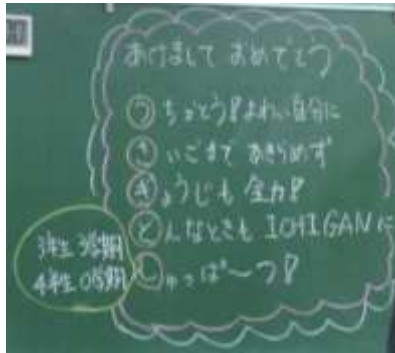 あけまして おめでとう
うちかとう!よわい自分に
さいごまで あきらめず
ぎょうじも 全力!
どんなときも ICHIGANに
しゅっぱ〜つ!
3年生 3学期
4年生 0学期